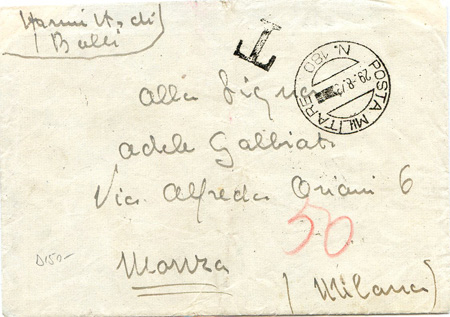 di
Balli
T
POSTA MILITARE
N. 180
29-8
Alla Signora
Adele Galbiati
Via Alfredo Oriani 6
50
Monza
(Milano)